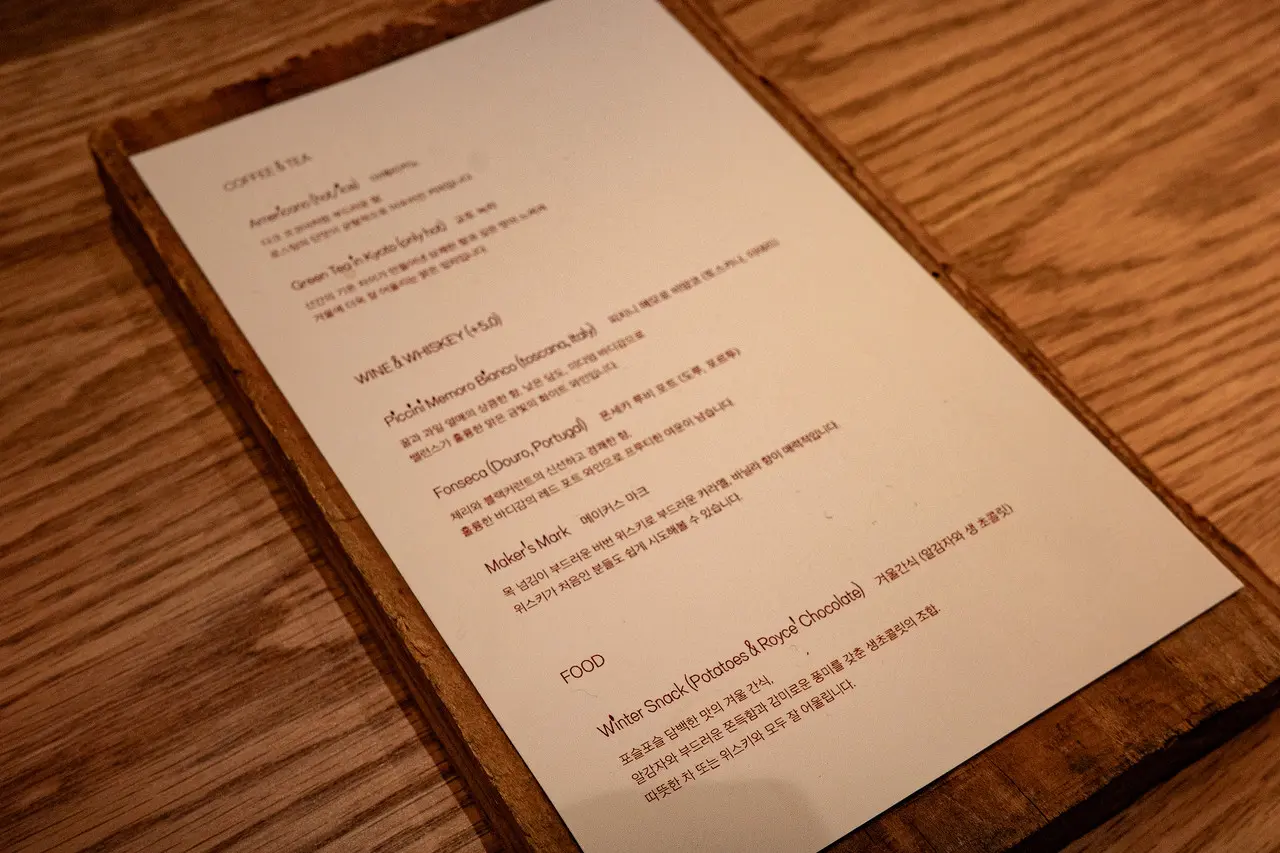 COFFEE & TEA
Americano (hot/ice) 아메리카노
다크 초코처럼 부드러운 향.
로스팅의 단맛이 균형적으로 마무리된 커피입니다.
Green Tea in Kyoto (only hot) 교토 녹차
산간의 기온 차이가 만들어낸 상쾌한 향과 깊은 맛의 노지차
겨울에 더욱 잘 어울리는 맑은 일차입니다.
WINE & WHISKEY (+5.0)
Piccini Memoro Bianco (toscana, Italy) 피치니 메모로 비앙코 (토스카나, 이태리)
꿀과 과일 열매의 상큼한 향, 낮은 당도, 미디엄 바디감으로
밸런스가 훌륭한 맑은 금빛의 화이트 와인입니다.
Fonseca (Douro, Portugal) 폰세카 루비 포트 (도루, 포르투)
체리와 블랙커런트의 신선하고 경쾌한 향.
훌륭한 바디감의 레드 포트 와인으로 프루티한 여운이 남습니다.
Maker's Mark 메이커스 마크
목 넘김이 부드러운 버번 위스키로, 부드러운 카라멜, 바닐라 향이 매력적입니다.
위스키가 처음인 분들도 쉽게 시도해볼 수 있습니다.
FOOD
Winter Snack (Potatoes & Royce' Chocolate) 겨울간식 (알감자와 생 초콜릿)
포슬포슬 담백한 맛의 겨울 간식,
알감자와 부드러운 쫀득함과 감미로운 풍미를 갖춘 생초콜릿의 조합.
따뜻한 차 또는 위스키와 모두 잘 어울립니다.